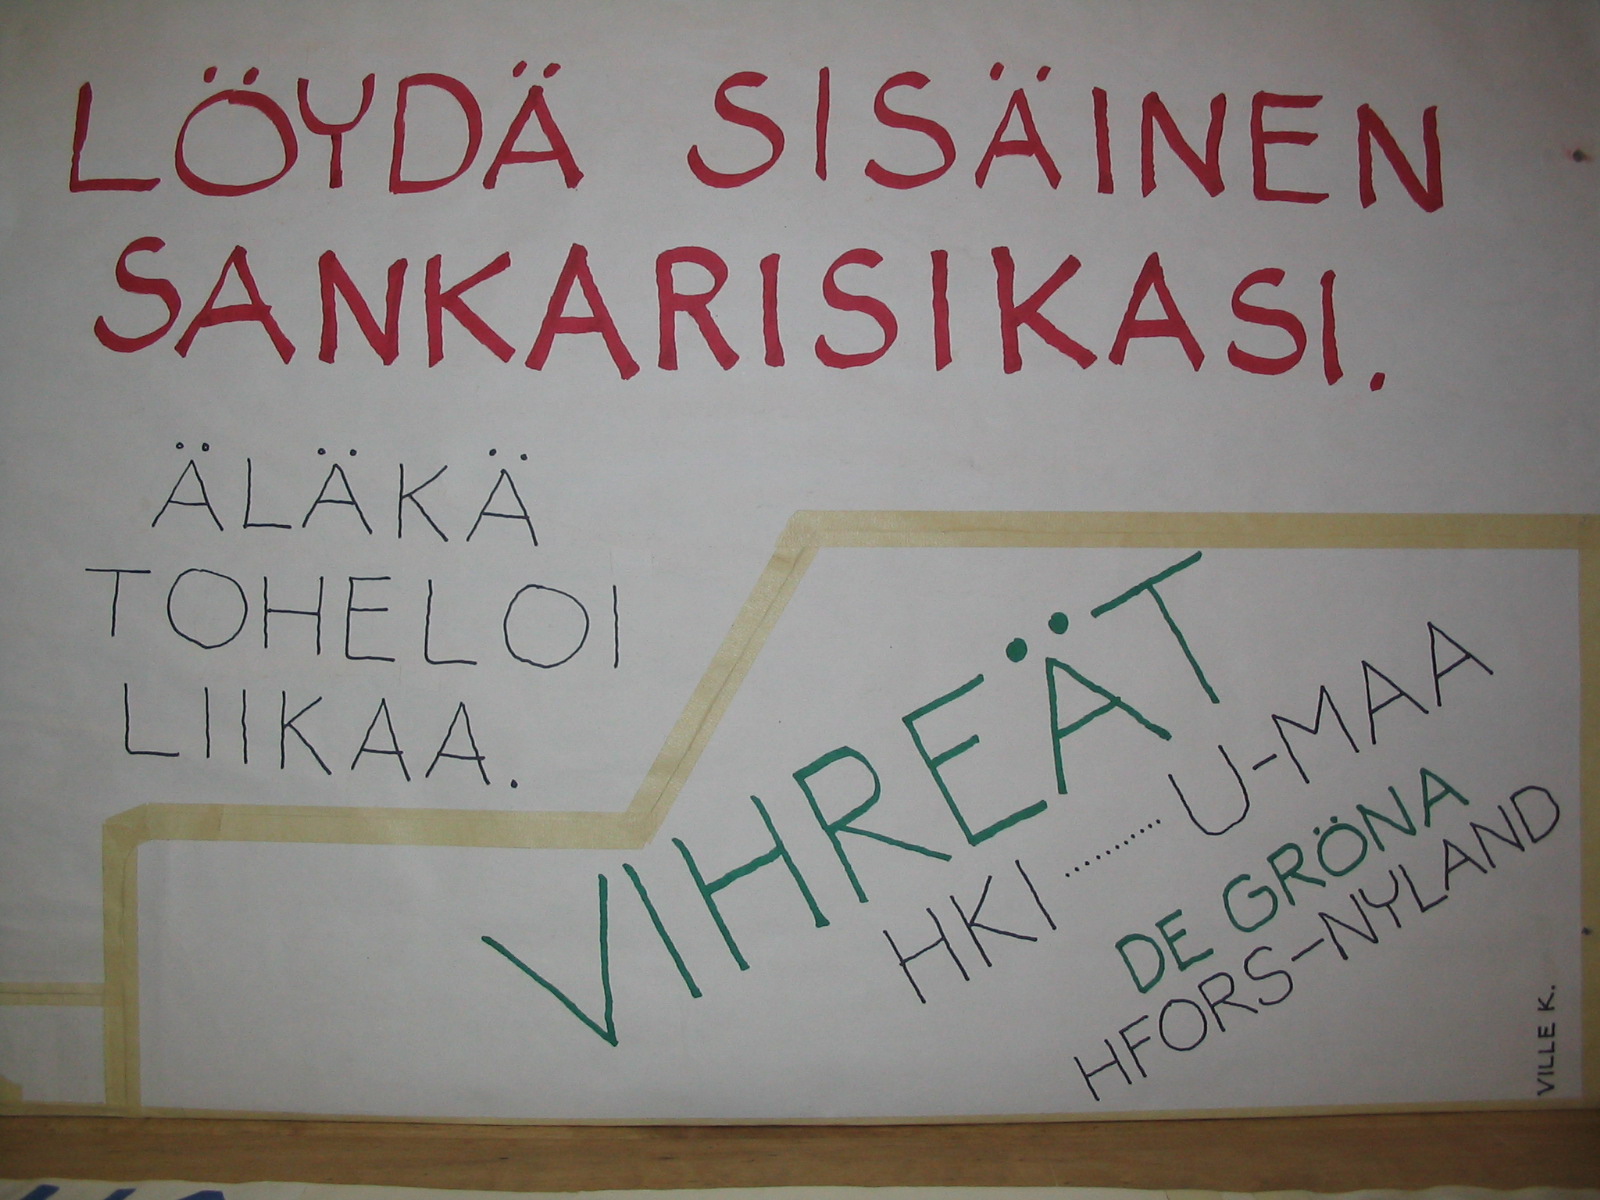 LÖYDÄ SISÄINEN
SANKARISIKASI.
ÄLÄKÄ
TOHELOI
LIIKAA.
VIHREÄT
HKI ......... U-MAA
DE GRÖNA
HFORS-NYLAND
VILLE K.